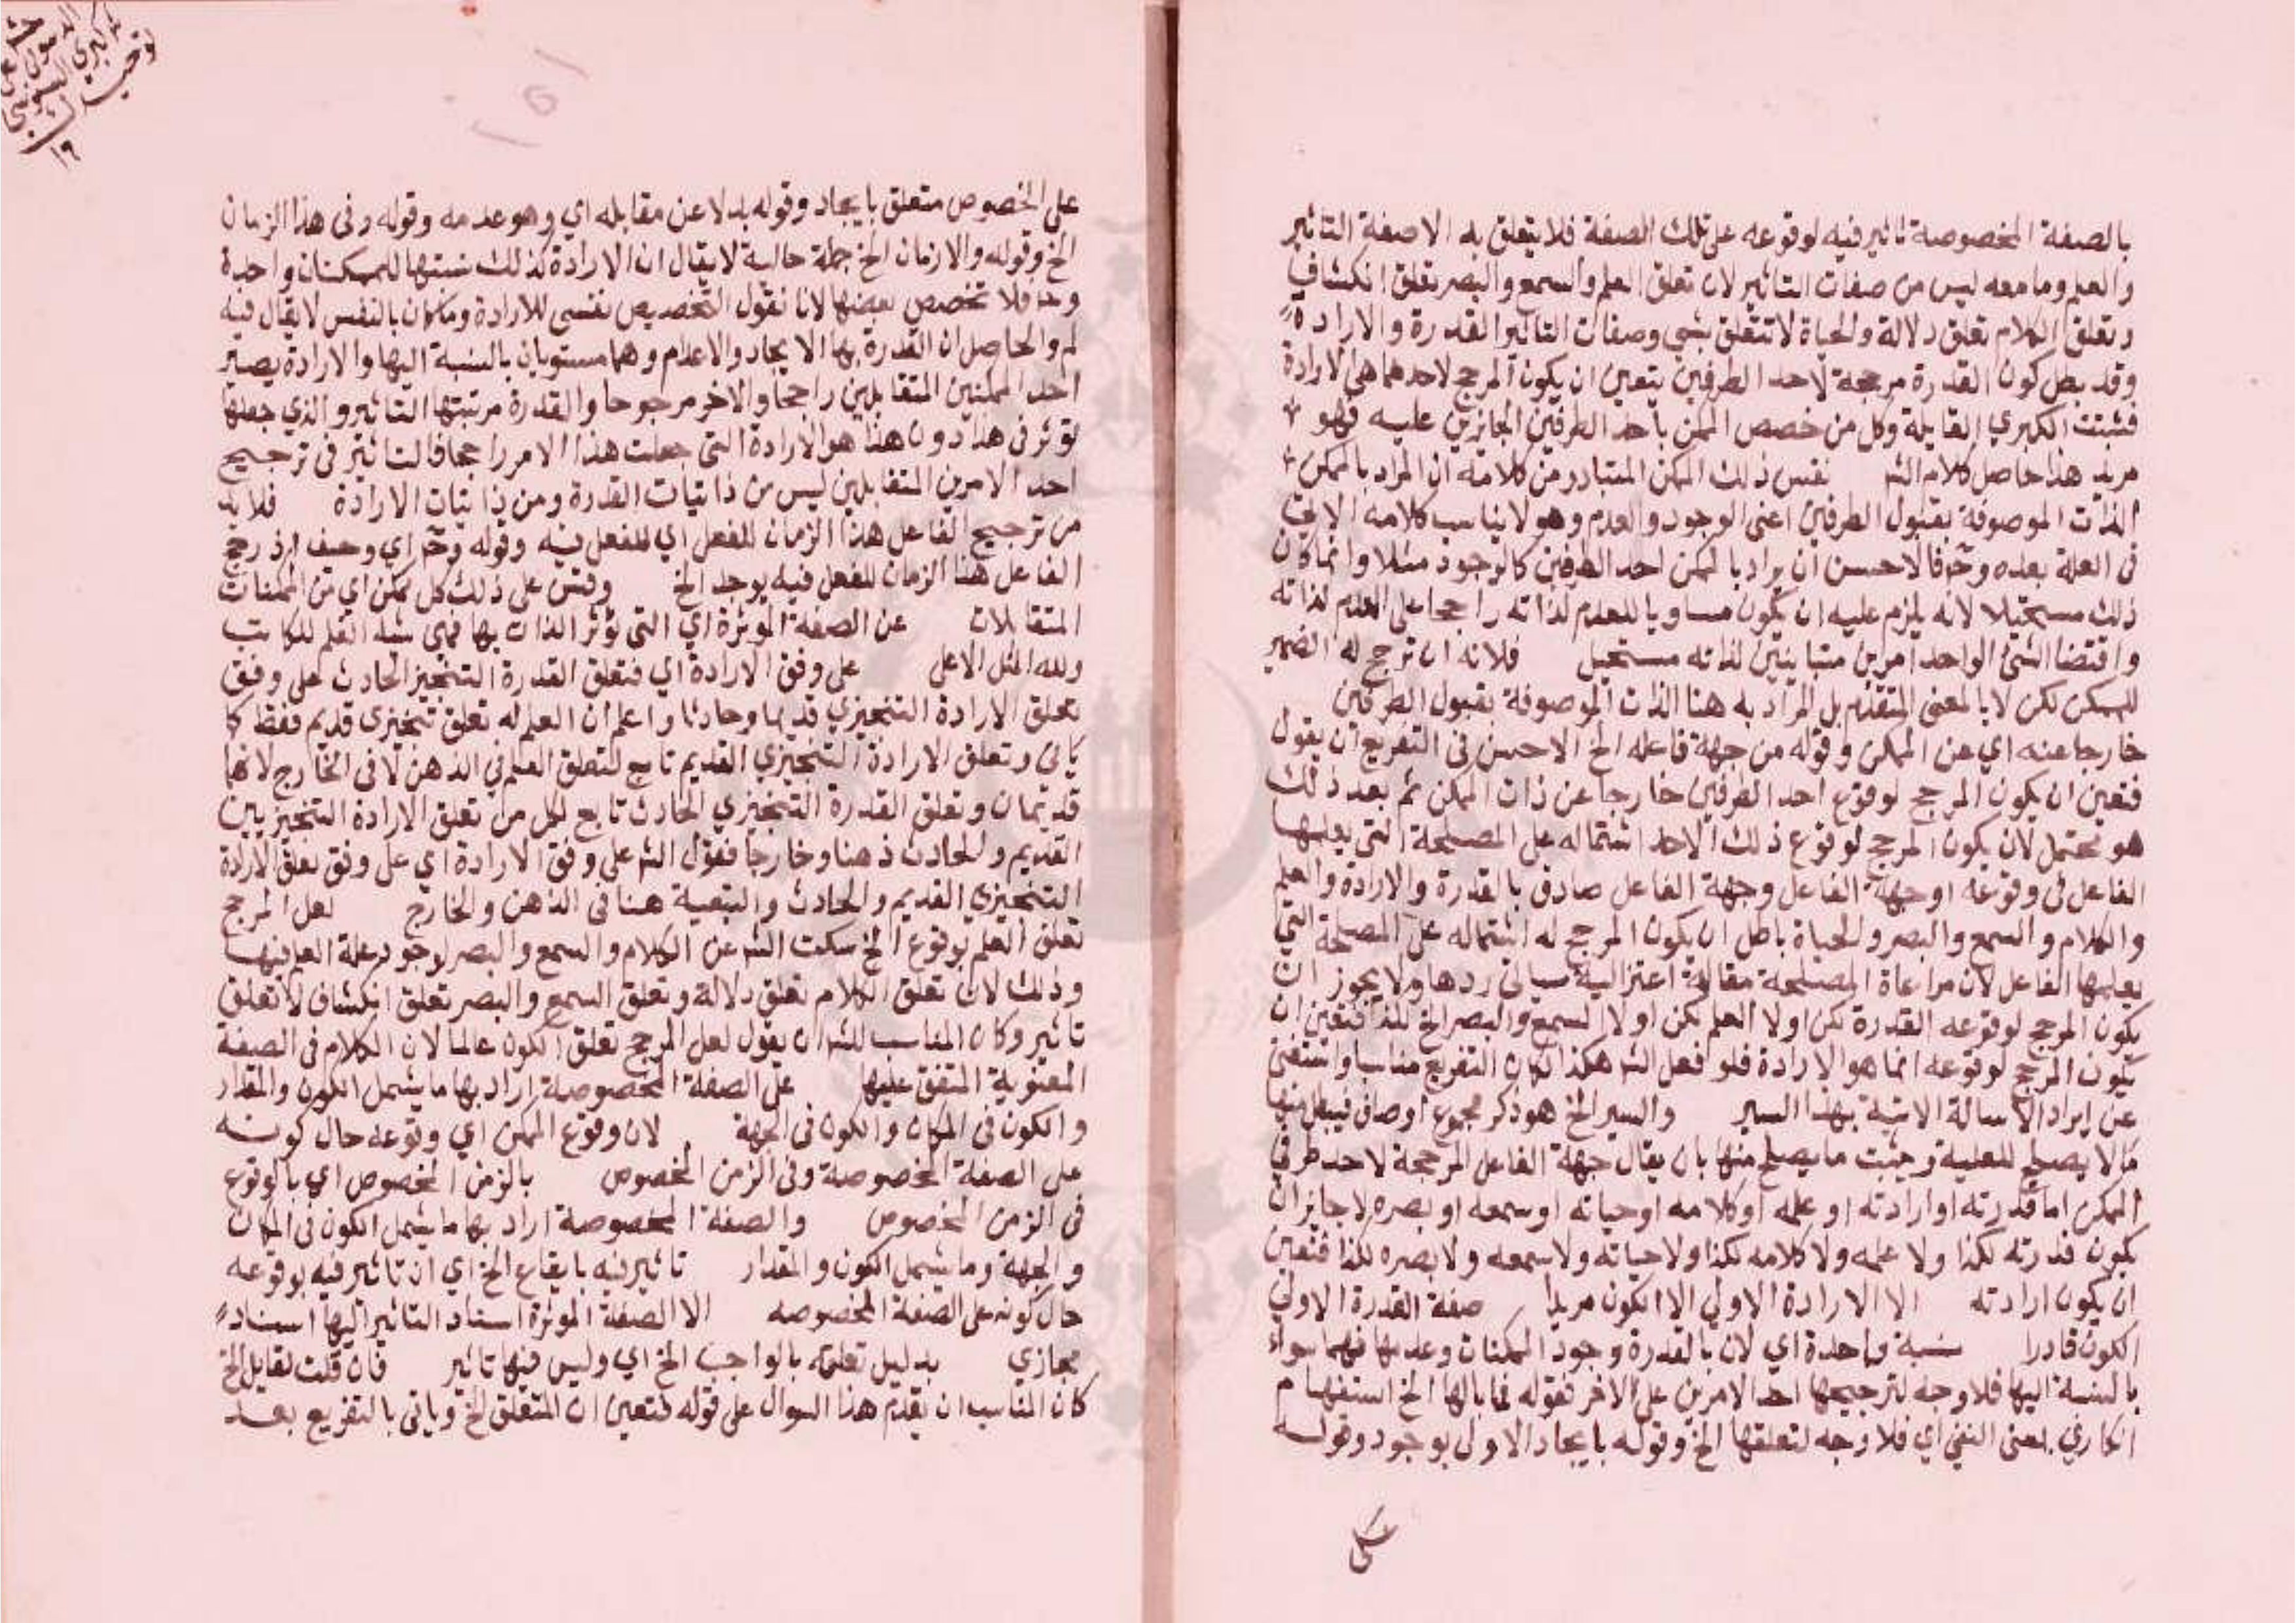 بالصفة المخصوصة تاثير فيه لوقوعه على تلك الصفة فلا يتعلق به الا صفة التاثير
والعلم وما معه ليس من صفات التاثير لان تعلق العلم والسمع والبصر تعلق انكشاف
وتعلق الكلام تعلق دلالة والحياة لا تتعلق بشي وصفات التاثير القدرة والارادة
وقد بطل كون القدرة مرجحة لاحد الطرفين يتعين ان يكون المرجح لاحدهما هي الارادة
فثبتت الكبري القايلة وكل من خصص الممكن باحد الطرفين الجايزين عليه فهو
مريد هذا حاصل كلام الشم نفس ذلك الممكن المتبادر من كلامه ان المراد بالممكن
الذات الموصوفة بقبول الطرفين اعني الوجود والعدم وهو لا يناسب كلامه الاتي
في العلة بعده وح فالاحسن ان يراد بالممكن احد الطرفين كالوجود مثلا وانما كان
ذلك مستحيلا لانه يلزم عليه ان يكون مساويا للعدم لذاته راجحا على العدم لذاته
واقتضا الشئ الواحد امرين متباينين لذاته مستحيل فلانه ان ترجح له الضمير
للممكن لكن لا بالمعنى المتقدم بل المراد به هنا الذات الموصوفة بقبول الطرفين
خارجا عنه اي عن الممكن وقوله من جهة فاعله الخ الاحسن في التفريع ان يقول
فتعين ان يكون المرجح لوقوع احد الطرفين خارجا عن ذات الممكن ثم بعد ذلك
هو محتمل لان يكون المرجح لوقوع ذلك الاحد اشتماله على المصلحة التي يعلمها
الفاعل في وقوعه او جهة الفاعل وجهة الفاعل صادق بالقدرة والارادة والعلم
والكلام والسمع والبصر والحياة باطل ان يكون المرجح له اشتماله على المصلحة التي
يعلمها الفاعل لان مراعاة المصلحة مقالة اعتزالية سياتي ردها ولا يجوز ان
يكون المرجح لوقوعه القدرة لكن اولا العلم لكن اولا السمع والبصر الخ للذا فتعين ان
يكون المرجح لوقوعه انما هو الارادة فلو فعل الشم هكذا لكان التفريع مناسبا واستغني
عن ايراد الاسالة الاتية بهذا السبر والسبر الخ هو ذكر مجموع اوصاف فيبطل منها
ما لا يصلح للعلية ويثبت ما يصلح منها بان يقال جهة الفاعل المرجحة لاحد طرفي
الممكن اما قدرته او ارادته او علمه او كلامه او حياته او سمعه او بصره لا جايز ان
يكون قدرته لكذا ولا علمه ولا كلامه لكذا ولا حياته ولا سمعه ولا بصره لكذا فتعين
ان يكون ارادته الا الارادة الاولي الا الكون مريدا صفة القدرة الاولي
الكون قادرا نسبة واحدة اي لان بالقدرة وجود الممكنات وعدمها فهما سواء
بالنسبة اليها فلا وجه لترجيحها احد الامرين على الاخر فقوله فما بالها الخ استفهام
انكاري بمعنى النفي اي فلا وجه لتعلقها الخ وقوله بايجاد الاول بوجود وقوله
على
على الخصوص متعلق بايجاد وقوله بدلا عن مقابله اي وهو عدمه وقوله وفي هذا الزمان
الخ وقوله والازمان الخ جملة حالية لا يقال ان الارادة كذلك نسبتها للممكنات واحدة
وح فلا تخصص بعضها لانا نقول التخصيص نفسى للارادة وما كان بالنفس لا يقال فيه
لم والحاصل ان القدرة بها الايجاد والاعدام وهما مستويان بالنسبة اليها والارادة يصير
احد الممكنين المتقابلين راجحا والاخر مرجوحا والقدرة مرتبتها التاثير والذي جعلها
توثر في هذا دون هذا هو الارادة التي جعلت هذا الامر راجحا فالتاثير في ترجيح
احد الامرين المتقابلين ليس من ذاتيات القدرة ومن ذاتيات الارادة فلا بد
من ترجيح الفاعل هذا الزمان للفعل اي للفعل فيه وقوله وح اي وحيف اذ رجح
الفاعل هذا الزمان للفعل فيه يوجد الخ وقس على ذلك كل ممكن اي من الممكنات
المتقابلات عن الصفة الموثرة اي التي تؤثر الذات بها فهي شبه القلم للكاتب
ولله المثل الاعلى على وفق الارادة اي فتعلق القدرة التنجيز الحادث على وفق
تعلق الارادة التنجيزي قديما وحادثا واعلم ان العلم له تعلق تنجيزي قديم فقط كما
ياتي وتعلق الارادة التنجيزي القديم تابع لتعلق العلم في الذهن لا في الخارج لانهما
قديمان وتعلق القدرة التنجيزي الحادث تابع لكل من تعلق الارادة التنجيزيين
القديم والحادث ذهنا وخارجا فقول الشم على وفق الارادة اي على وفق تعلق الارادة
التنجيزي القديم والحادث والتبعية هنا في الذهن والخارج لعل المرجح
تعلق العلم بوقوع الخ سكت الشم عن الكلام والسمع والبصر لوجود علة العلم فيها
وذلك لان تعلق الكلام تعلق دلالة وتعلق السمع والبصر تعلق انكشاف لا تعلق
تاثير وكان المناسب للشم ان يقول لعل المرجح تعلق الكون عالما لان الكلام في الصفة
المعنوية المتفق عليها على الصفة المخصوصة اراد بها ما يشمل الكون والمقدار
والكون في المكان والكون في الجهة لان وقوع الممكن اي وقوعه حال كونه
على الصفة المخصوصة وفي الزمن المخصوص بالزمن المخصوص اي بالوقوع
في الزمن المخصوص والصفة المخصوصة اراد بها ما يشمل الكون في المكان
والجهة وما يشمل الكون والمقدار تاثير فيه بايقاع الخ اي ان تاثير فيه بوقوعه
حال كونه على الصفة المخصوصه الا الصفة الموثرة اسناد التاثير اليها اسناد
مجازي بدليل تعلقه بالواجب الخ اي وليس فيها تاثير فان قلت لقايل الخ
كان المناسب ان يقدم هذا السوال على قوله فتعين ان المتعلق الخ وياتي بالتفريع بعد